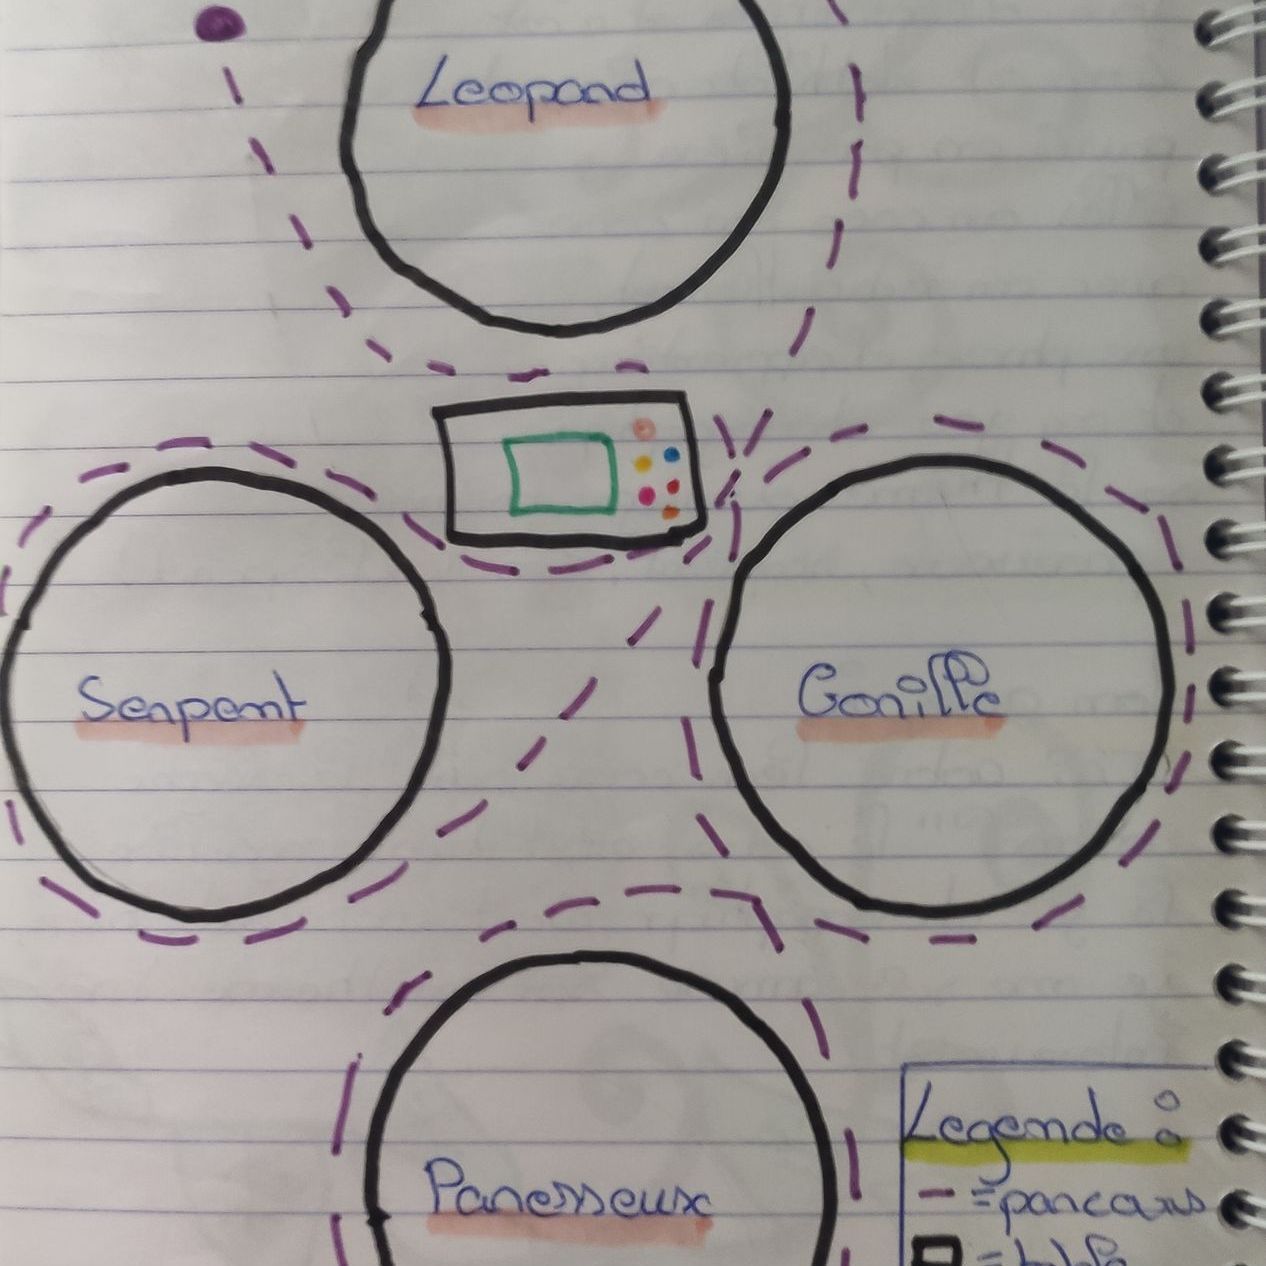 Leopard
Serpent
Gorille
Paresseux
Legende :
- = parcours
= table